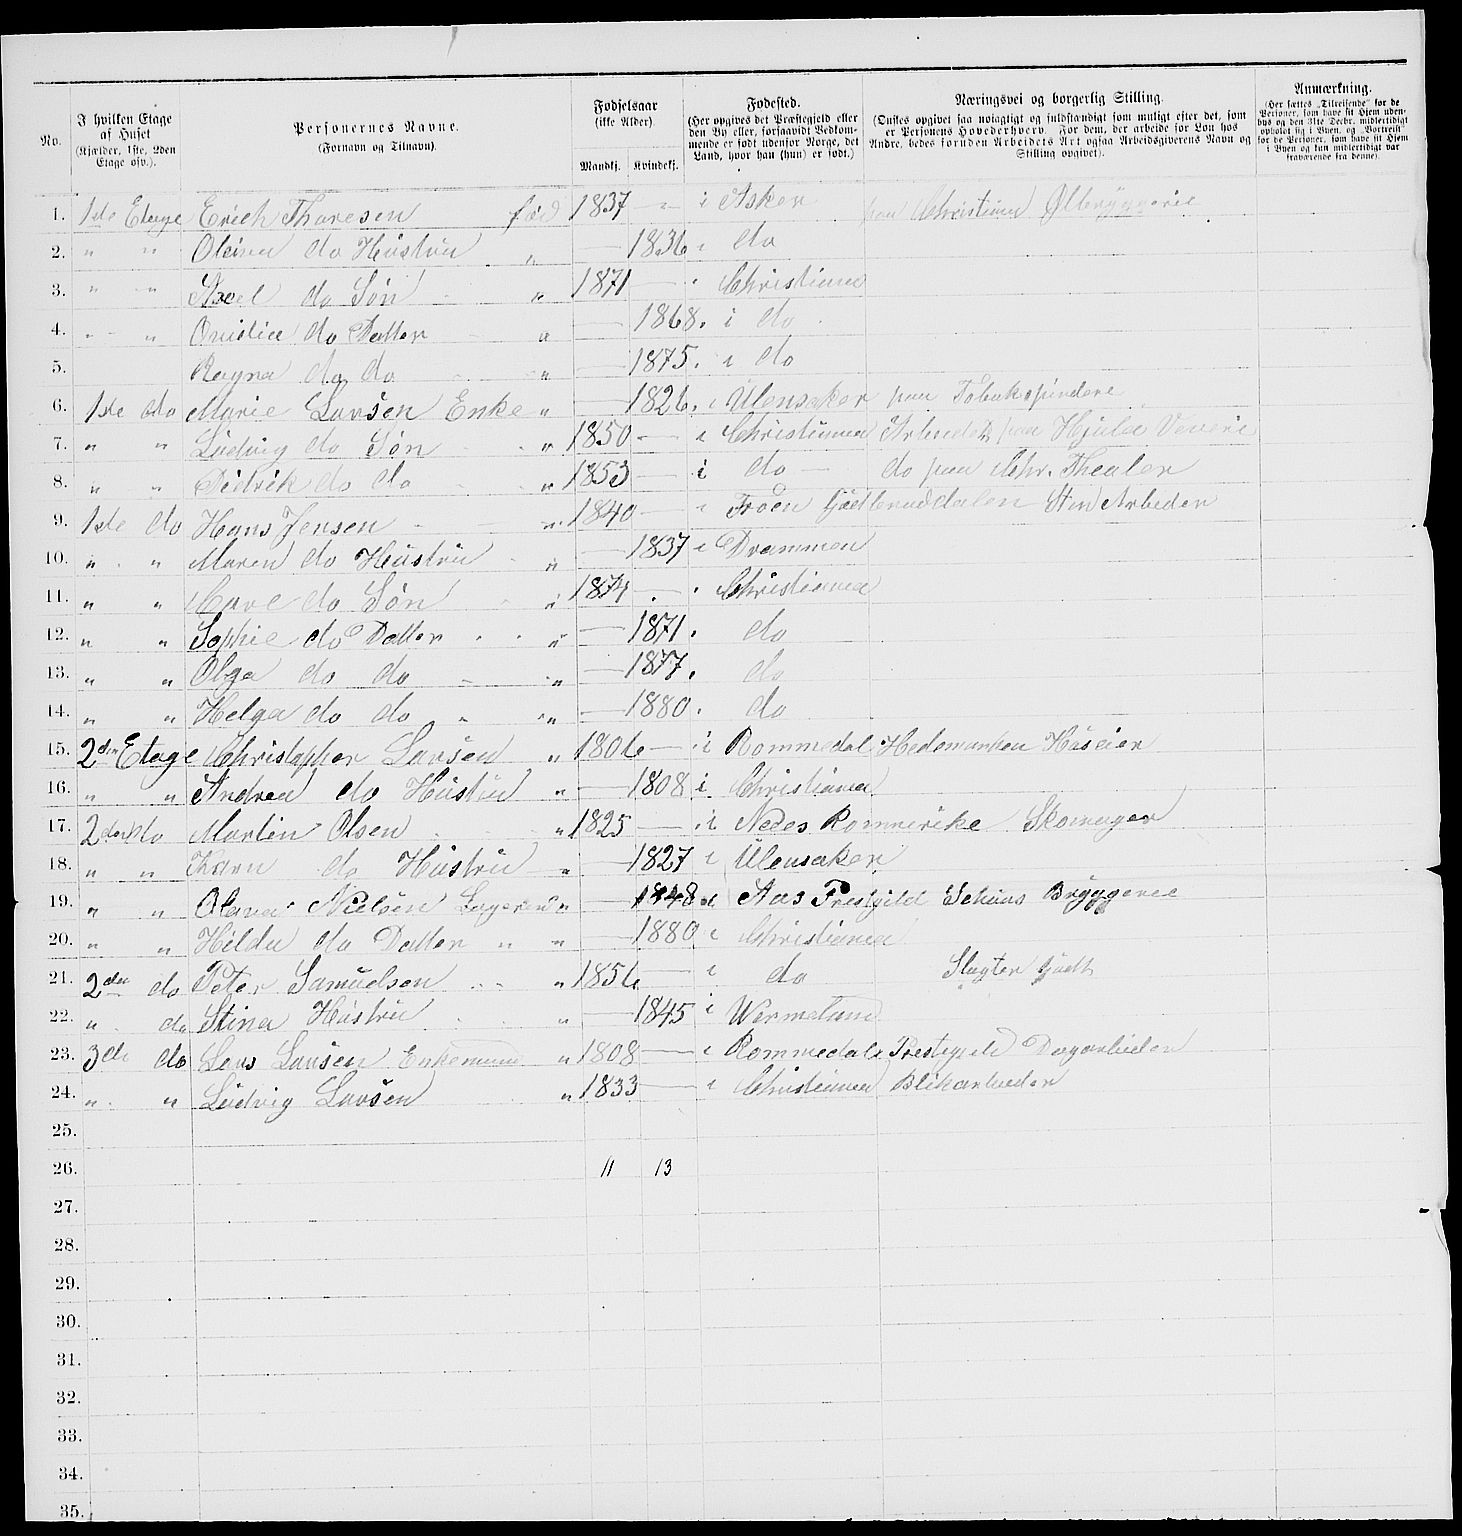 No.
I hvilken Etage af Huset (Kjælder, 1ste, 2den Etage osv.).
Personernes Navne.
(Fornavn og Tilnavn).
Fødselsaar
(ikke Alder).
Mandkj. Kvindekj.
Fødested.
(Her opgives det Præstegjeld eller den By eller, forsaavidt Vedkommende er født udenfor Norge, det Land, hvor han (hun) er født.)
Næringsvei og borgerlig Stilling.
(Ønskes opgivet saa nøiagtigt og fuldstændigt som muligt efter det, som er Personens Hovederhverv. For dem, der arbeide for Løn hos Andre, bedes foruden Arbeidets Art ogsaa Arbeidsgiverens Navn og Stilling opgivet).
Anmærkning.
(Her sættes „Tilreisende“ for de Personer, som have sit Hjem udenbys og den 31te Decbr. midlertidigt opholdt sig i Byen, og „Bortreist“ for de Personer, som have sit Hjem i Byen og kun midlertidigt var fraværende fra denne).
1. 1ste Etage Erich Thoresen fød 1837 - i Asker paa Christiana Ølbryggerie
2. " " Olivia do Hustru " — 1836 i do
3. " " Axel do Søn " 1871 — i Christiania
4. " " do Datter " — 1868. i do
5. Ragna do do " — 1875. i do
6. 1ste do Marie Larsen Enke " — 1826. i Ulensaker paa Tobakspinderi
7. " " Ludvig do Søn " 1850 — i Christiania Arbeider paa Hjula Veveri
8. " " Didrik do do " 1853 — i do — do paa Chr. Theater
9. 1ste do Hans Jensen " 1840 — i Froen Gudbrandsdalen Sten Arbeider
10. " " Maren do Hustru " — 1837 i Drammen
11. " " do Søn " 1874 — i Christiania
12. " " Sophie do Datter " — 1871. do
13. " " Olga do do " — 1877. do
14. " " Helga do do " — 1880. do
15. 2den Etage Christopher Larsen " 1806 — i Rommedal Hedemarken Huseier
16. " " Andrea do Hustru " — 1808 i Christiania
17. 2den do Martin Olsen " 1825 — i Nedes Rommerike Skomager
18. " " Karn do Hustru " — 1827 i Ulensaker
19. " " Olava Nielsen " — 1848 i Aas Prestgild Schous Bryggerie
20. " " Hilda do Datter " " — 1880 i Christiania
21. 2den do Peter Samuelsen " 1856 — i do Slagter
22. " do Stina Hustru " — 1845 i Wermeland
23. 3die do Lars Larsen Enkemand " 1808 — i Rommedals Prestegjeld Dagarbeider
24. " " Ludvig Larsen " 1833 — i Christiania Blikarbeider
25.
26. 11 13
27.
28.
29.
30.
31.
32.
33.
34.
35.